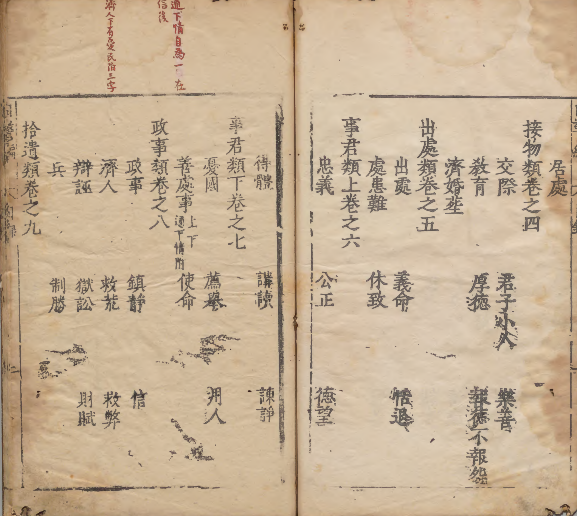 居處
接物類卷之四
交際 君子小人 樂善
教育 厚德 報德不報怨
濟婚塟
出處類卷之五
出處 義命 恬退
處患難 休致
事君類上卷之六
忠義 公正 德望
得體 講讀 諫諍
事君類下卷之七
憂國 薦擧 用人
善處事上下 通下情附 使命
政事類卷之八
政事 鎮靜 信
濟人 救荒 救弊
辯誣 獄訟 財賦
兵 制勝
拾遺類卷之九
通下情自為一 在
信後
濟人下有 民治三字